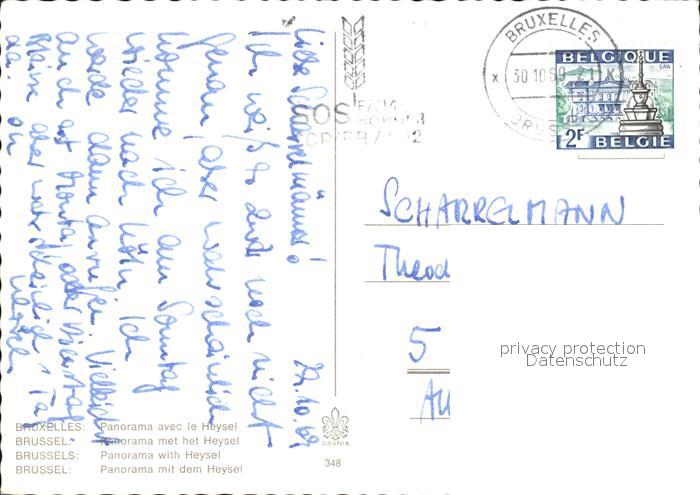 Liebe Scharrelmänner!
27.10.69
Ich weiß es zwar noch nicht
genau, aber wahrscheinlich
komme ich am Sonntag
wieder nach Köln. Ich
werde dann anrufen. Vielleicht
auch erst Montag oder Dienstag
aber wahrscheinlich
BRUXELLES
30 10 69
BRUSSEL
SOS FAIM
HONGER
BELGIQUE
SPA
2F
BELGIE
SCHARRELMANN
Theod
5
privacy protection
Datenschutz
BRUXELLES: Panorama avec le Heysel
BRUSSEL: Panorama met het Heysel
BRUSSELS: Panorama with Heysel
BRÜSSEL: Panorama mit dem Heysel
ORANIA
348